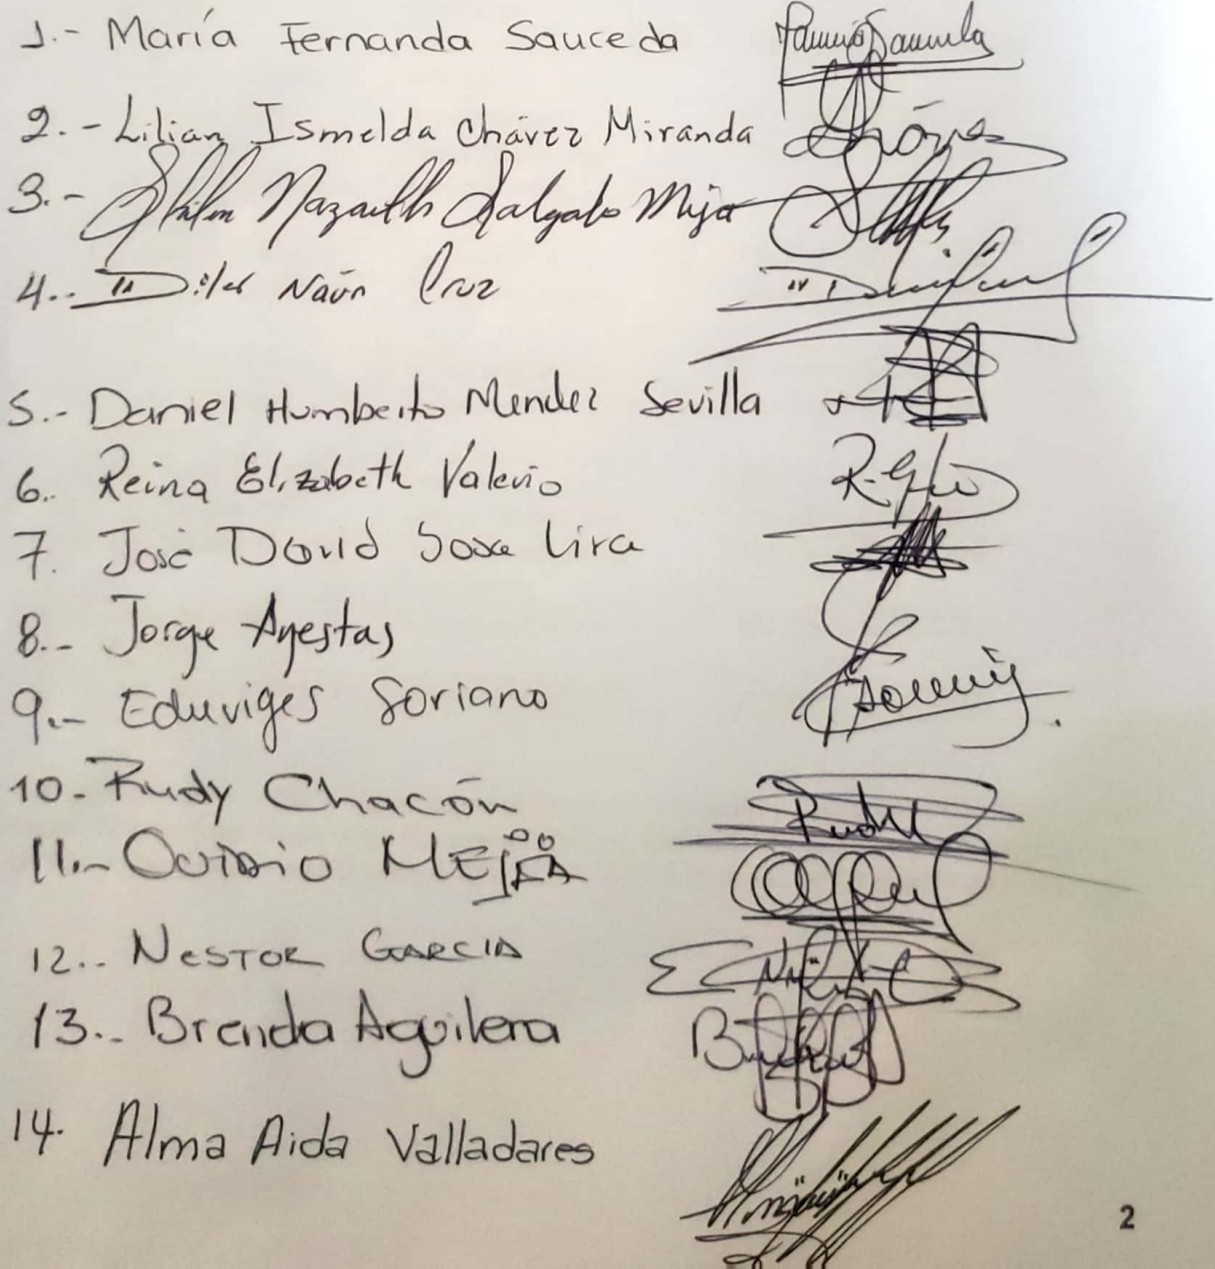 1.- María Fernanda Sauceda
2.- Lilian Ismelda Chávez Miranda Chávez
3.- Nazareth Salgado Mejia
4.- Naún Cruz
5.- Daniel Humberto Mendez Sevilla
6.. Reina Elizabeth Valerio
7. José David Sosa Lira
8.- Jorge Ayestas
9.- Eduviges Soriano
10.- Rudy Chacón
11.- Ovidio MEJÍA
12.. NESTOR GARCIA
13.. Brenda Aguilera
14. Alma Aida Valladares
2